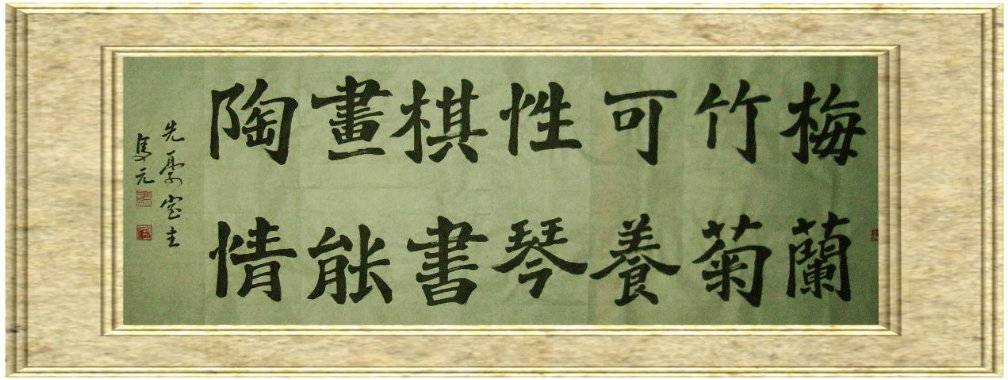 梅蘭
竹菊
可養
性琴
棋書
畫能
陶情
先憂室主
元